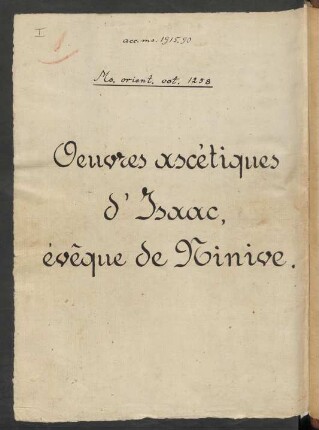 I
1
acc. ms. 1915.90
Ms. orient. oct. 1258
Oeuvres ascétiques
d'Isaac,
évêque de Ninive.